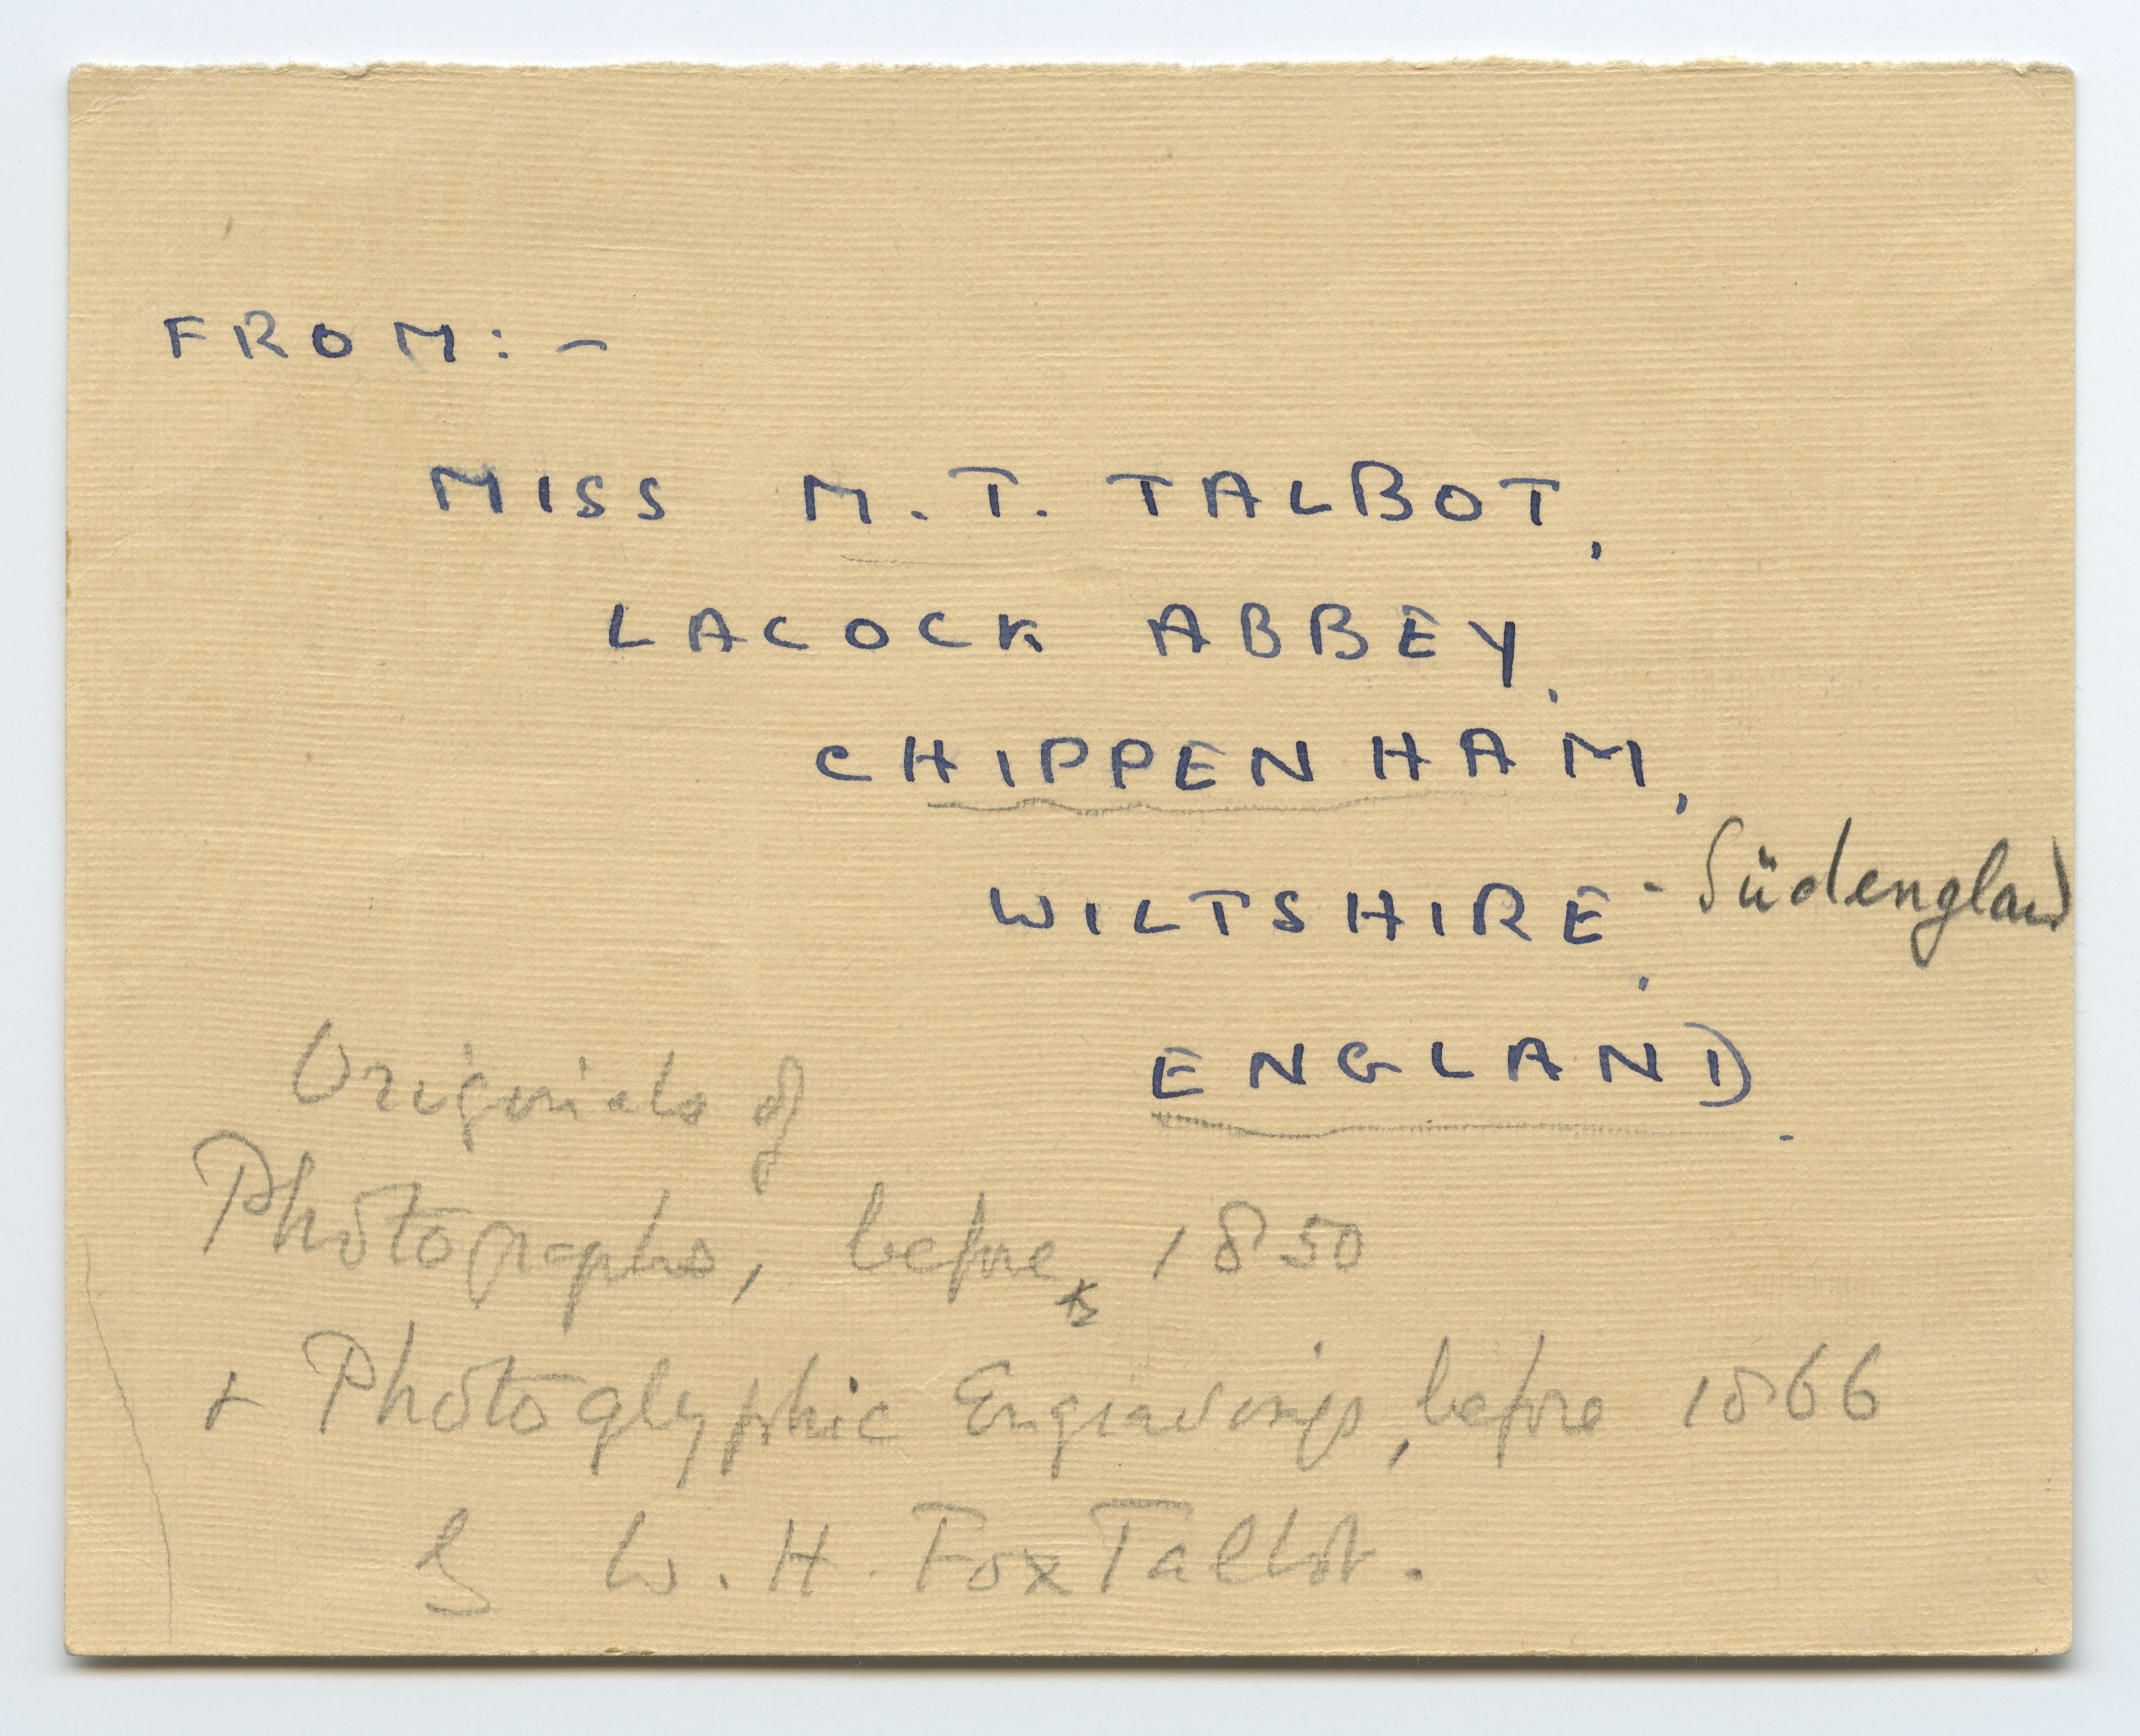 FROM:-
MISS M.T. TALBOT,
LACOCK ABBEY,
CHIPPENHAM,
WILTSHIRE. - Südengland
ENGLAND.
Originals of
Photographs, before 1850
+ Photoglyphic Engravings, before 1866
by W. H. Fox Talbot.